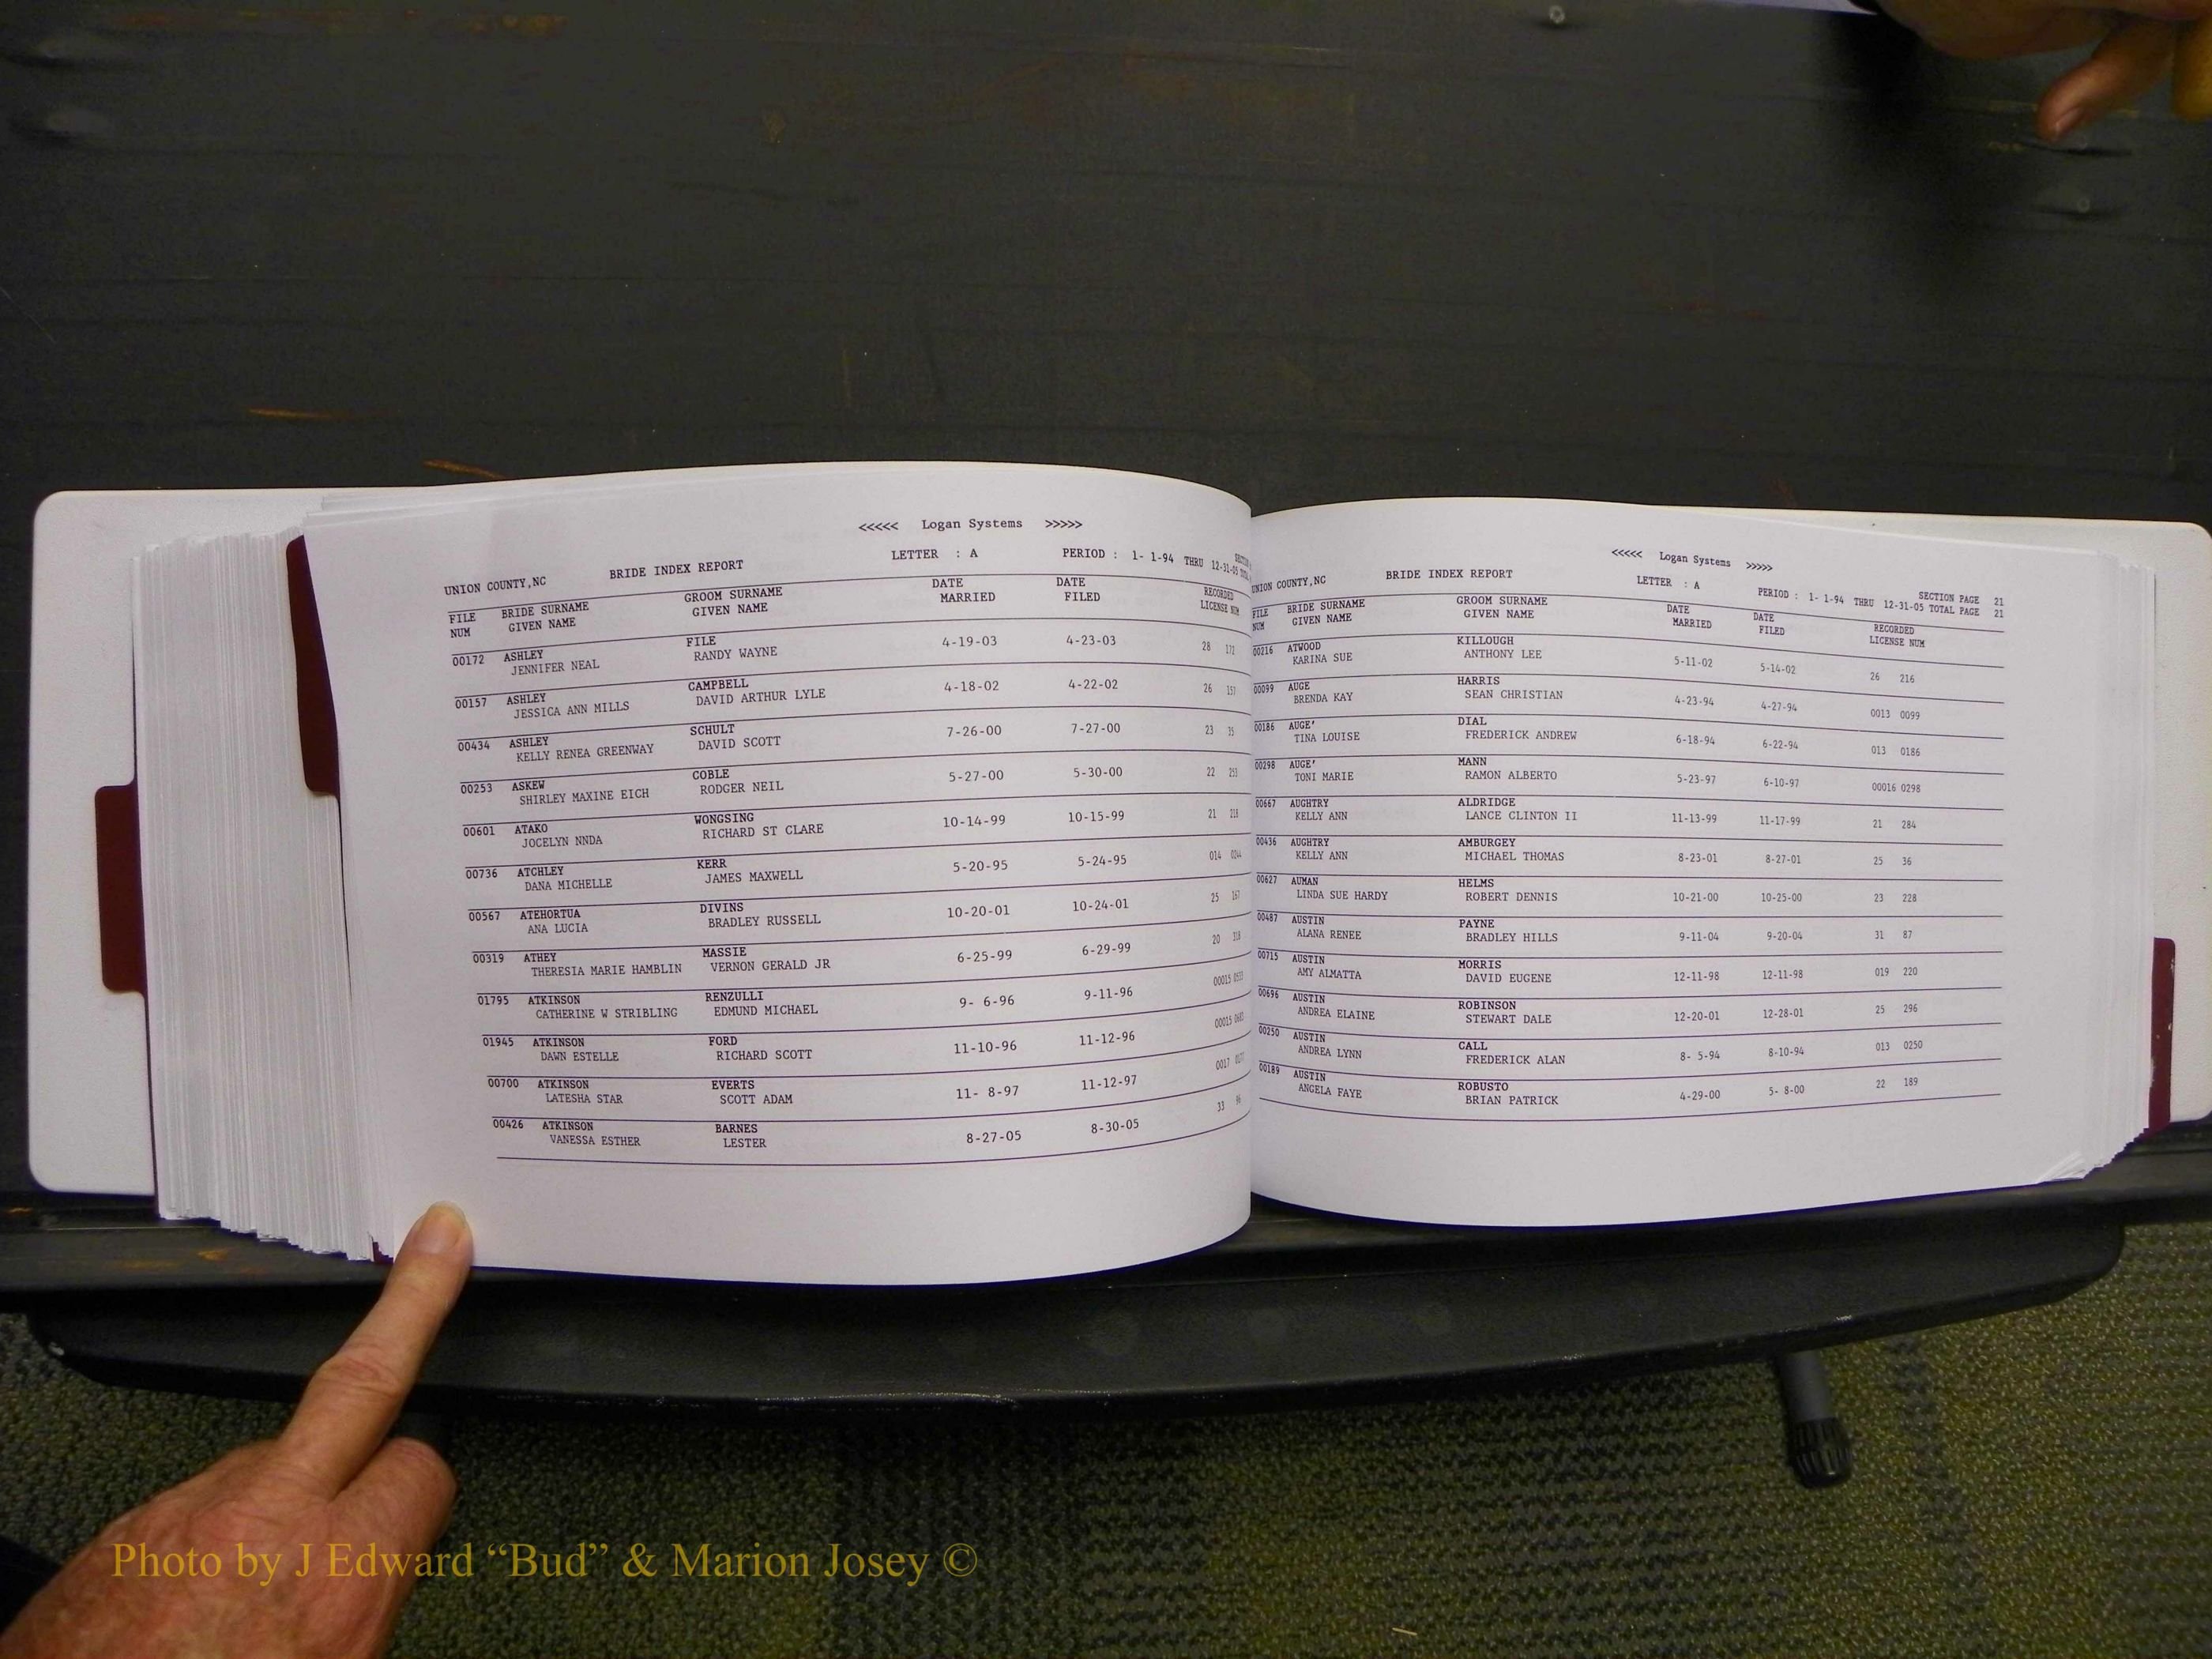 <<<<< Logan Systems >>>>>
UNION COUNTY,NC BRIDE INDEX REPORT LETTER : A PERIOD : 1- 1-94 THRU 12-31-05
FILE BRIDE SURNAME GROOM SURNAME DATE DATE RECORDED
NUM GIVEN NAME GIVEN NAME MARRIED FILED LICENSE NUM
00172 ASHLEY FILE 4-19-03 4-23-03 28 172
JENNIFER NEAL RANDY WAYNE
00157 ASHLEY CAMPBELL 4-18-02 4-22-02 26 157
JESSICA ANN MILLS DAVID ARTHUR LYLE
00434 ASHLEY SCHULT 7-26-00 7-27-00 23 35
KELLY RENEA GREENWAY DAVID SCOTT
00253 ASKEW COBLE 5-27-00 5-30-00 22 253
SHIRLEY MAXINE EICH RODGER NEIL
00601 ATAKO WONGSING 10-14-99 10-15-99 21 218
JOCELYN NNDA RICHARD ST CLARE
00736 ATCHLEY KERR 5-20-95 5-24-95 014
DANA MICHELLE JAMES MAXWELL
00567 ATEHORTUA DIVINS 10-20-01 10-24-01 25 167
ANA LUCIA BRADLEY RUSSELL
00319 ATHEY MASSIE 6-25-99 6-29-99 20 318
THERESIA MARIE HAMBLIN VERNON GERALD JR
01795 ATKINSON RENZULLI 9- 6-96 9-11-96 00015
CATHERINE W STRIBLING EDMUND MICHAEL
01945 ATKINSON FORD 11-10-96 11-12-96 00015
DAWN ESTELLE RICHARD SCOTT
00700 ATKINSON EVERTS 11- 8-97 11-12-97 0017
LATESHA STAR SCOTT ADAM
00426 ATKINSON BARNES 8-27-05 8-30-05 33
VANESSA ESTHER LESTER
<<<<< Logan Systems >>>>>
UNION COUNTY,NC BRIDE INDEX REPORT LETTER : A PERIOD : 1- 1-94 THRU 12-31-05 SECTION PAGE 21
TOTAL PAGE 21
FILE BRIDE SURNAME GROOM SURNAME DATE DATE RECORDED
NUM GIVEN NAME GIVEN NAME MARRIED FILED LICENSE NUM
00216 ATWOOD KILLOUGH 5-11-02 5-14-02 26 216
KARINA SUE ANTHONY LEE
00099 AUGE HARRIS 4-23-94 4-27-94 0013 0099
BRENDA KAY SEAN CHRISTIAN
00186 AUGE' DIAL 6-18-94 6-22-94 013 0186
TINA LOUISE FREDERICK ANDREW
00298 AUGE' MANN 5-23-97 6-10-97 00016 0298
TONI MARIE RAMON ALBERTO
00667 AUGHTRY ALDRIDGE 11-13-99 11-17-99 21 284
KELLY ANN LANCE CLINTON II
00436 AUGHTRY AMBURGEY 8-23-01 8-27-01 25 36
KELLY ANN MICHAEL THOMAS
00627 AUMAN HELMS 10-21-00 10-25-00 23 228
LINDA SUE HARDY ROBERT DENNIS
00487 AUSTIN PAYNE 9-11-04 9-20-04 31 87
ALANA RENEE BRADLEY HILLS
00715 AUSTIN MORRIS 12-11-98 12-11-98 019 220
AMY ALMATTA DAVID EUGENE
00696 AUSTIN ROBINSON 12-20-01 12-28-01 25 296
ANDREA ELAINE STEWART DALE
00250 AUSTIN CALL 8- 5-94 8-10-94 013 0250
ANDREA LYNN FREDERICK ALAN
00189 AUSTIN ROBUSTO 4-29-00 5- 8-00 22 189
ANGELA FAYE BRIAN PATRICK
Photo by J Edward “Bud” & Marion Josey ©